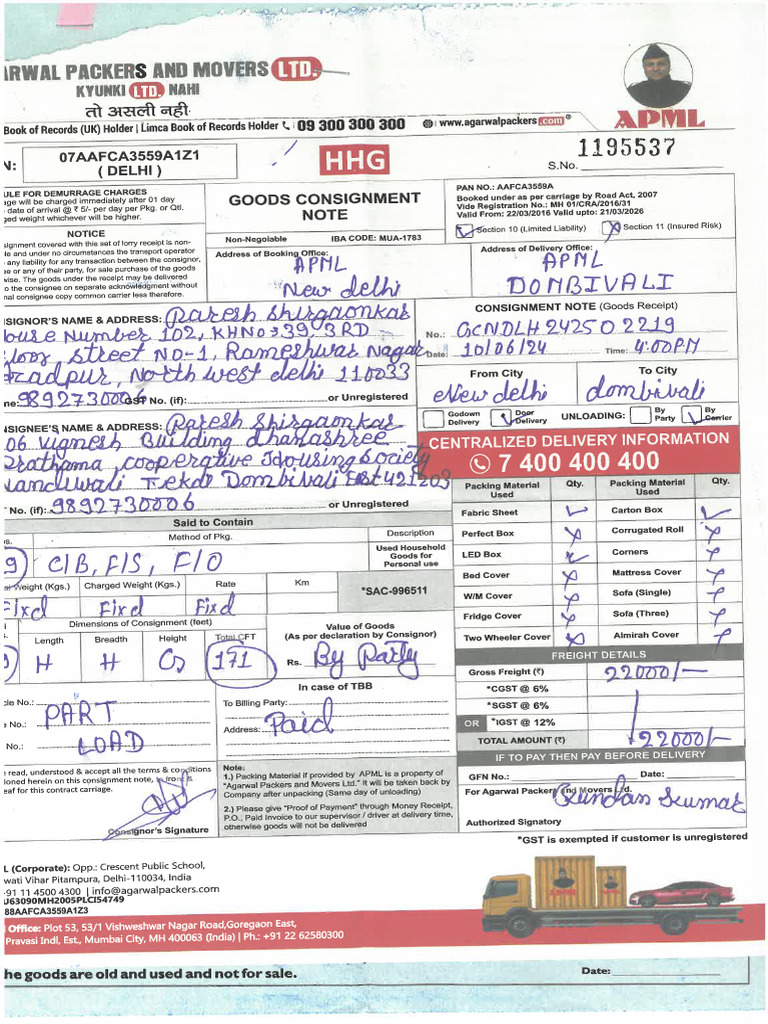 ARWAL PACKERS AND MOVERS LTD.
KYUNKI LTD. NAHI
तो असली नही
Book of Records (UK) Holder | Limca Book of Records Holder 09 300 300 300 www.agarwalpackers.com®
APML
N: 07AAFCA3559A1Z1
( DELHI )
HHG
S.No. 1195537
ULE FOR DEMURRAGE CHARGES
age will be charged immediately after 01 day
date of arrival @ ₹ 5/- per day per Pkg. or Qtl.
ged weight whichever will be higher.
NOTICE
signment covered with this set of lorry receipt is non-
le and under no circumstances the transport operator
any liability for any transaction between the consignor,
e or any of their party, for sale purchase of the goods
wise. The goods under the receipt may be delivered
o the consignee on separate acknowledgment without
nal consignee copy common carrier less therefore.
GOODS CONSIGNMENT
NOTE
Non-Negoiable IBA CODE: MUA-1783
Address of Booking Office:
APML
New delhi
PAN NO.: AAFCA3559A
Booked under as per carriage by Road Act, 2007
Vide Registration No.: MH 01/CRA/2016/31
Valid From: 22/03/2016 Valid upto: 21/03/2026
Section 10 (Limited Liability) Section 11 (Insured Risk)
Address of Delivery Office:
APML
DOMBIVALI
SIGNOR'S NAME & ADDRESS: Paresh Shirgaonkar
ouse Number 102, KHNO 339, 3RD
loor, street No-1, Rameshwar Nagar
zadpur, North west delhi 110033
ne: 9892730006 GST No. (if): or Unregistered
CONSIGNMENT NOTE (Goods Receipt)
No.: GCNDLH242502219
Date: 10/06/24 Time: 4:00PM
From City To City
New delhi dombivali
Godown Delivery Door Delivery UNLOADING: By Party By Carrier
SIGNEE'S NAME & ADDRESS: Paresh Shirgaonkar
06 Vignesh Building dhanashree
Prathama cooperative Housing Society
anduwali Tekdi Dombivali East 421203
No. (if): 9892730006 or Unregistered
CENTRALIZED DELIVERY INFORMATION
7 400 400 400
Said to Contain
Method of Pkg. Description
9 C/B, F/S, F/O
Used Household
Goods for
Personal use
Weight (Kgs.) Charged Weight (Kgs.) Rate Km
Fixd Fixd Fixd
*SAC-996511
Dimensions of Consignment (feet)
Length Breadth Height Total CFT
H H 171
Value of Goods
(As per declaration by Consignor)
Rs. By Party
Packing Material Used Qty. Packing Material Used Qty.
Fabric Sheet Carton Box
Perfect Box Corrugated Roll
LED Box Corners
Bed Cover Mattress Cover
W/M Cover Sofa (Single)
Fridge Cover Sofa (Three)
Two Wheeler Cover Almirah Cover
FREIGHT DETAILS
Gross Freight (₹) 22000/-
*CGST @ 6%
*SGST @ 6%
OR *IGST @ 12%
TOTAL AMOUNT (₹) 22000/-
IF TO PAY THEN PAY BEFORE DELIVERY
cle No.: PART
e No.:
No.: LOAD
In case of TBB
To Billing Party:
Address: Paid
read, understood & accept all the terms & conditions
ioned herein on this consignment note,
eaf for this contract carriage.
Consignor's Signature
Note:
1.) Packing Material if provided by APML is a property of
"Agarwal Packers and Movers Ltd." it will be taken back by
Company after unpacking (Same day of unloading)
2.) Please give "Proof of Payment" through Money Receipt,
P.O., Paid Invoice to our supervisor / driver at delivery time,
otherwise goods will not be delivered
GFN No.: Date:
For Agarwal Packers and Movers Ltd.
Kundan Kumar
Authorized Signatory
*GST is exempted if customer is unregistered
L (Corporate): Opp.: Crescent Public School,
wati Vihar Pitampura, Delhi-110034, India
+91 11 4500 4300 | info@agarwalpackers.com
U63090MH2005PLC154749
88AAFCA3559A1Z3
Office: Plot 53, 53/1 Vishweshwar Nagar Road,Goregaon East,
Pravasi Indl, Est., Mumbai City, MH 400063 (India) | Ph.: +91 22 62580300
he goods are old and used and not for sale. Date: